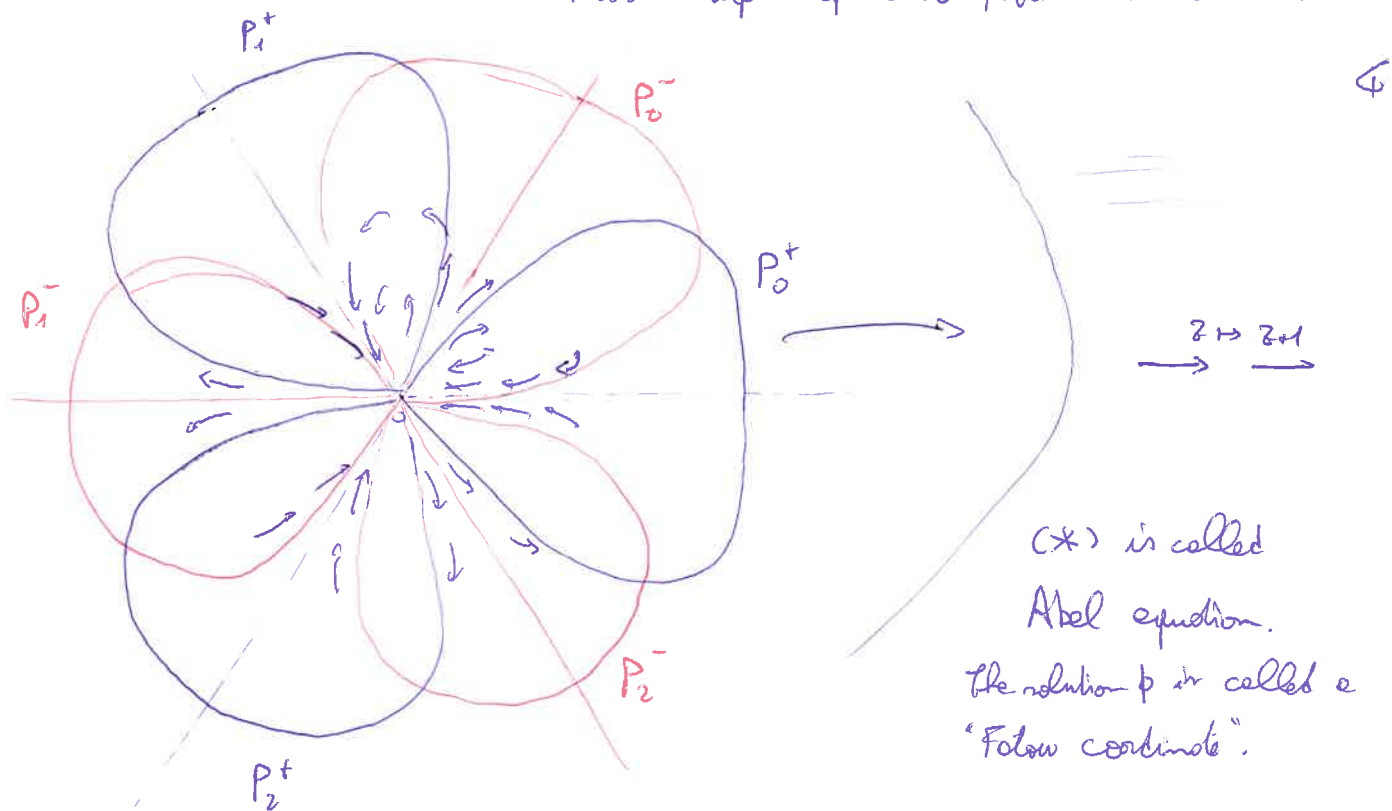 P₁⁺
P₀⁻
P₁⁻
P₀⁺
z ↦ z+1
0
P₂⁻
P₂⁺
(*) is called
Abel equation.
The solution ϕ is called a
"Fatou coordinate".